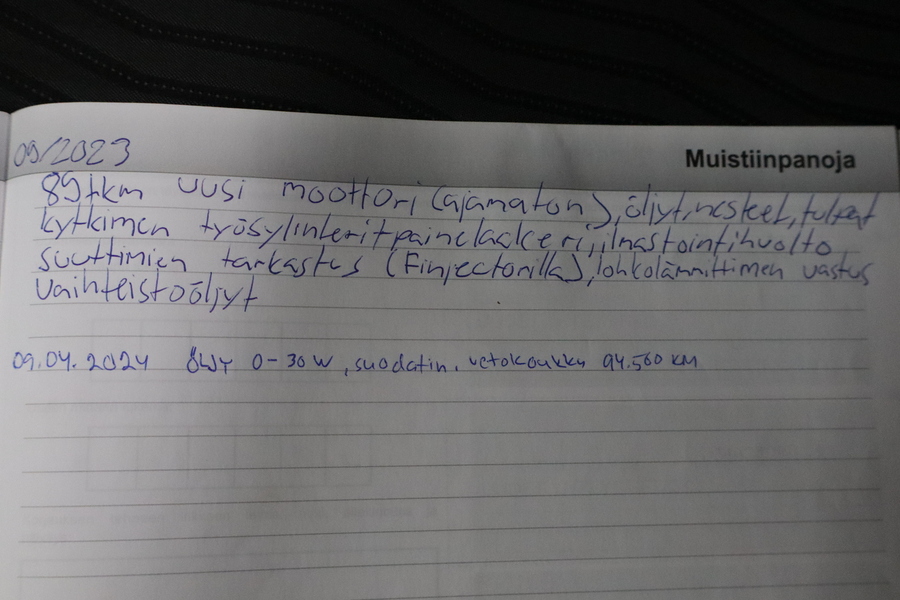 Muistiinpanoja
09/2023
89tkm uusi moottori (ajamaton), öljyt, nesteet, tulpat
kytkimen työsylinterit painelaakeri, ilmastointihuolto
suuttimien tarkastus (Finjectorilla), lohkolämmittimen vastus
Vaihteistoöljyt
09.04.2024 ÖLJYT 0-30W, suodatin, vetokoukku 94.560 KM